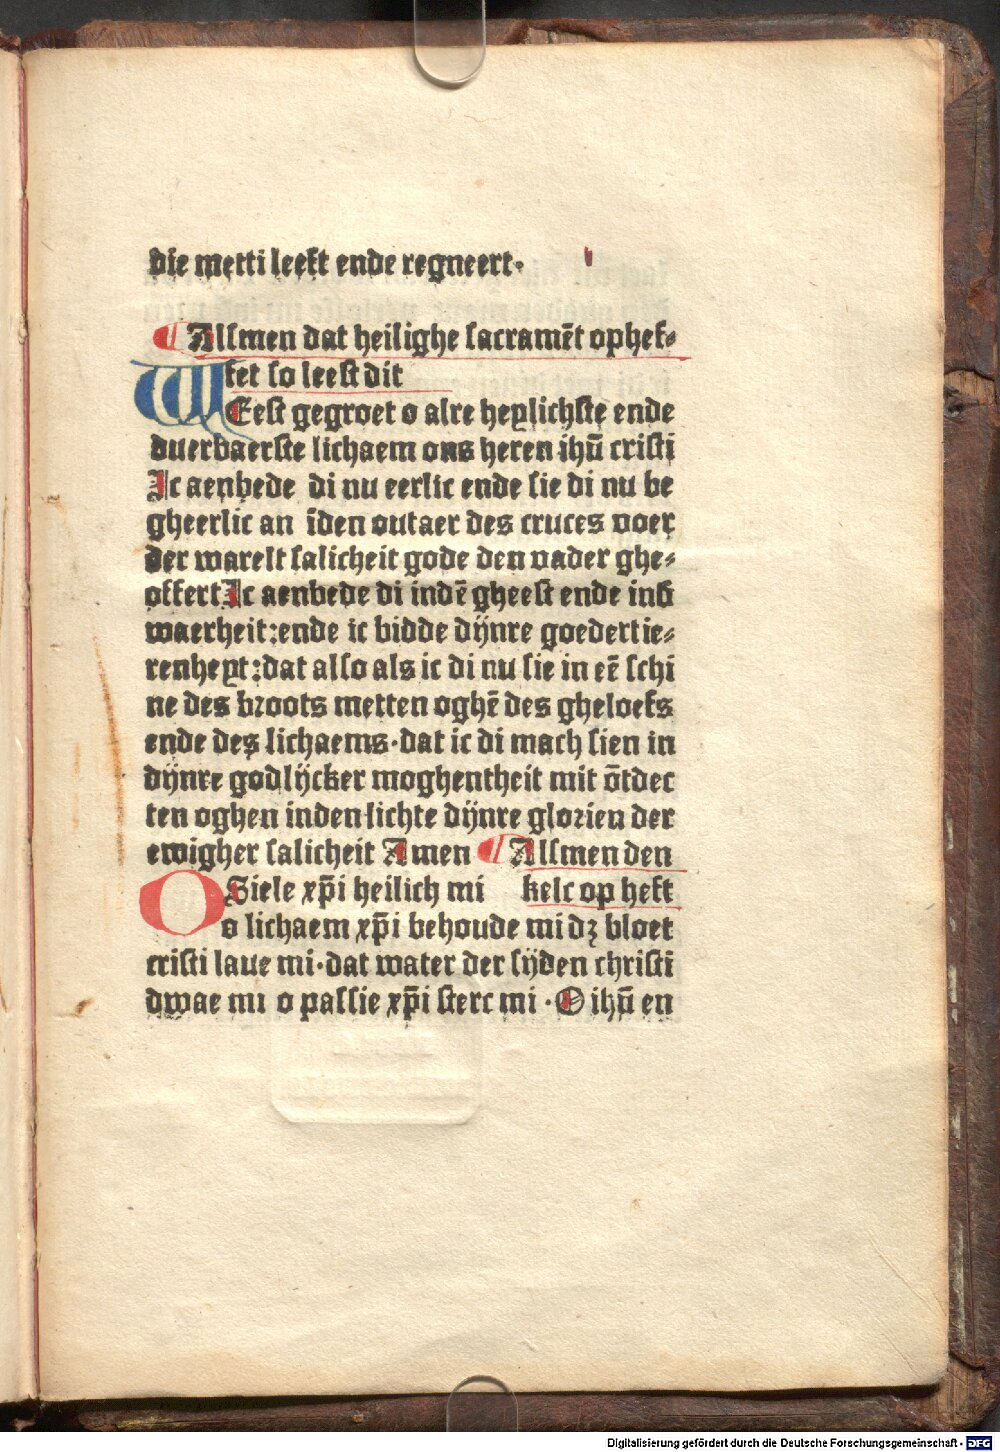 die metti leeft ende regneert·
Alsmen dat heilighe sacramēt ophef⸗
fet so leest dit
WEest gegroet o alre heylichste ende
duerbaerste lichaem ons heren ihū cristi
Ic aenbede di nu eerlic ende sie di nu be
gheerlic an īden outaer des cruces voer
der warelt salicheit gode den vader ghe⸗
offert Ic aenbede di indē gheest ende ind
waerheit:ende ic bidde dijnre goedertie⸗
renheyt:dat also als ic di nu sie in eē schi
ne des broots metten oghē des gheloefs
ende des lichaems·dat ic di mach sien in
dijnre godlijcker moghentheit mit ōtdec
ten oghen inden lichte dijnre glorien der
ewigher salicheit Amen Alsmen den
kelc op heft
O Siele xp̄i heilich mi
o lichaem xp̄i behoude mi dz bloet
cristi laue mi·dat water der sijden christi
dwae mi o passie xp̄i sterc mi · O ihū en
Digitalisierung gefördert durch die Deutsche Forschungsgemeinschaft - DFG